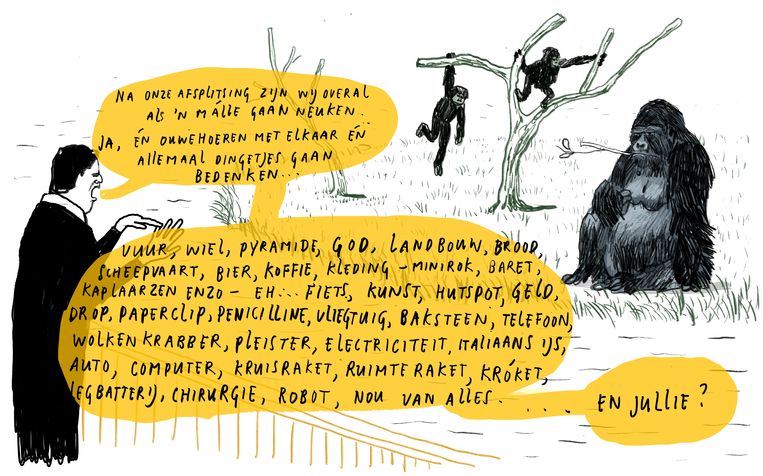 NA ONZE AFSPLITSING ZIJN WIJ OVERAL
ALS 'N MÁLLE GAAN NEUKEN.
JA, ÉN OUWEHOEREN MET ELKAAR ÉN
ALLEMAAL DINGETJES GAAN
BEDENKEN...
VUUR, WIEL, PYRAMIDE, GOD, LANDBOUW, BROOD,
SCHEEPVAART, BIER, KOFFIE, KLEDING - MINIROK, BARET,
KAPLAARZEN ENZO - EH... FIETS, KUNST, HUTSPOT, GELD,
DROP, PAPERCLIP, PENICILLINE, VLIEGTUIG, BAKSTEEN, TELEFOON,
WOLKENKRABBER, PLEISTER, ELECTRICITEIT, ITALIAANS IJS,
AUTO, COMPUTER, KRUISRAKET, RUIMTERAKET, KRÓKET,
LEGBATTERIJ, CHIRURGIE, ROBOT, NOU VAN ALLES. ....
EN JULLIE?